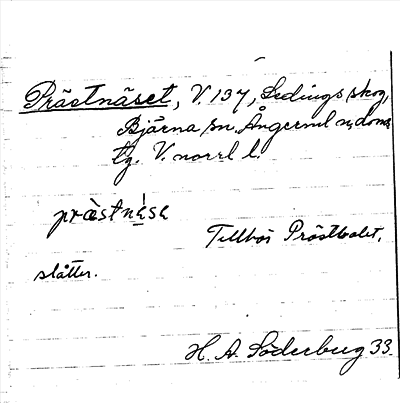 Prästnäset, V. 137, Ledings skog,
Bjärna sn. Ångerml n, doms
tg. V. norrl l.
præstnése
Tillhör Prästbolet,
slåtter.
H. A. Söderberg 33.